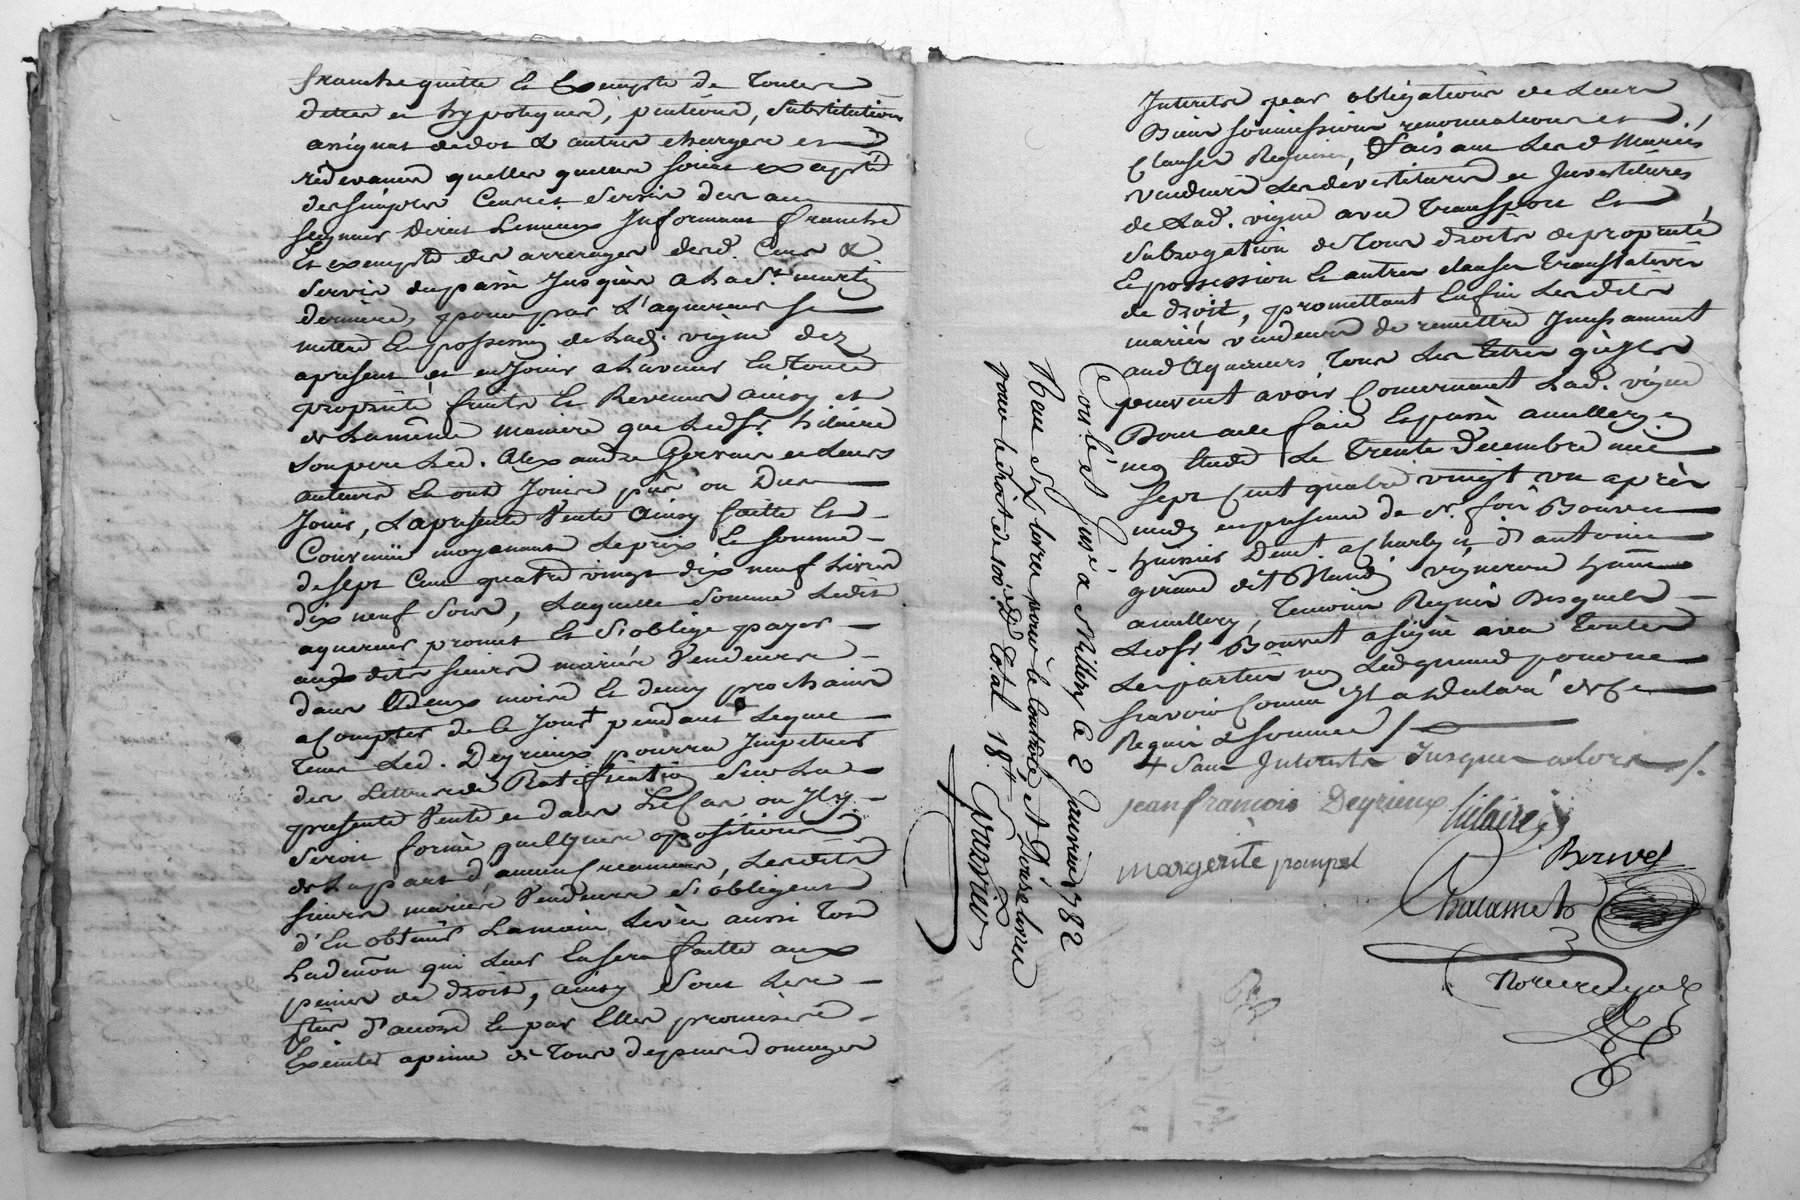 franche quitte et exempte de toutes
dettes et hypoteques, pentions, substitutions
assignat dedot & autres charges et
redevances quelles quelles soint exepté
des simples Cens et Servis dus au
seigneur direct Lemieux Informant franche
Et exempte des arrerages desd. Cens &
servis dupassé Jusques a La St. martin
derniere, pour par L'aquereur se
mettre En possession de Lad. vigne dez
apresent et en Jouir a Lavenir En toute
proprieté fruits Et Revenus ainsy et
de La même maniere que Led Sr. hilaire
son pere Led. Alexandre Gervais et Leurs
auteurs En ont Jouis, pus ou Dus
Jouir, Lapresente Vente ainsy faitte Et
Convenüe moyenant Le prix Et somme
de sept Cent quatre vingt dix neuf Livres
dix neuf sous, Laquelle somme Ledit
aquereur promet Et S'oblige payer
auxdits sieurs mariés Vendeurs
dans deux mois Et demy prochains
a Compter de Ce Jour + pendant Lequel
tems Led. Deyrieux pourra Impetrer
des Lettres de Ratification sur La
presente Vente et dans Le Cas ou Il y
seroit formé quelques opositions
de La part d'aucuns creanciers, Lesdits
sieurs mariés Vendeurs s'obligent
d'En obtenir La main Levée aussi tost
La denõn qui Leur En sera faitte aux
peines de droit, ainsy sont Les
parties d'acord Et par Elles promis
Executer apeine de tous depens domages
Interets par obligations de Leurs
Biens soumissions renonciations et
Clauses Requises, faisant Lesd Mariés
vendeurs Les devestitures et Investitures
de Lad. vigne avec transport Et
subrogation de tous droits de proprieté
Et possession Et autres clauses translatives
de droit, promettant Enfin Lesdits
mariés vendeurs de remettre Incessament
aud aquereur tous Les titres qu'ils
peuvent avoir Concernant Lad. vigne
Dont acte fait Et passé a millery
mon Etude Le trente decembre mil
sept Cent quatre vingt un après
midy en presence de Sr. Bouvet
huissier Demt. a Charly et d'antoine
giraud dit vigneron
a millery, temoins Requis Desquels
Led Sr Bouvet a signé avec toutes
Les parties non Led giraud pour ne
sçavoir Comme Il a declaré de Ce
Requis & sommé /
+ sans Interets Jusques alors /.
jean francois Deyrieux hilaire
margerite pompel Bouvet
Chalamel
Notre royal
Controllé et Jnsé a Millery le 2 Janvier 1782
Reçu Six livres pour le Controlle et Douze livres
pour le droit de 100e. D. Total 18tt